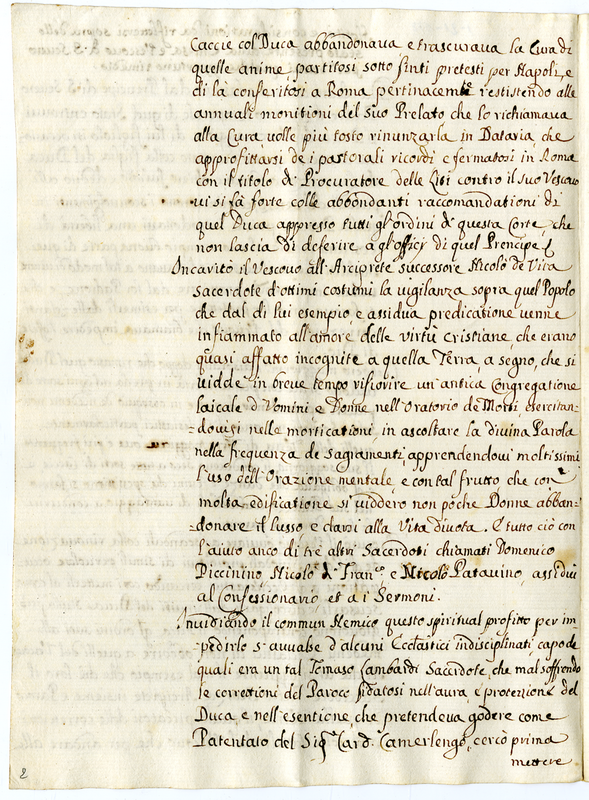 Caccie col Duca abbandonaua e trascuraua la Cura di
quelle anime, partitosi sotto finti pretesti per Napoli, e
di là conferitosi a Roma pertinacemte restistendo alle
annuali monitioni del Suo Prelato che lo richiamaua
alla Cura, uolle più tosto rinunzarla in Dataria, che
approfittarsi de i pastorali ricordi, e fermatosi in Roma
con il titolo di Procuratore delle Liti contro il suo Vescouo
ui si fà forte colle abbondanti raccomandationi di
quel Duca appresso tutti gl'ordini di questa Corte, che
non lascia di deferire a gl'officij di quel Prencipe
Incaricò il Vescouo all'Arciprete successore Nicolò de Vita
sacerdote d'ottimi costumi la uigilanza sopra quel Popolo
che dal di lui esempio e assidua predicatione uenne
infiammato all'amore delle uirtù cristiane, che erano
quasi affatto incognite a quella Terra, a segno, che si
uidde in breue tempo rifiorire un'antica Congregatione
laicale d'Uomini e Donne nell'Oratorio de Morti, esercitan=
=douisi nelle morticationi, in ascoltare la diuina Parola
nella frequenza de Sagramenti, apprendendoui moltissimi
l'uso dell'Orazione mentale, e con tal frutto che con
molta edificatione si uiddero non poche Donne abban=
=donare il lusso, e darsi alla Vita diuota. E tutto ciò con
l'aiuto anco di trè altri Sacerdoti chiamati Domenico
Piccinino, Nicolò di Franco. e Nicolò Patauino, assidui
al Confessionario, et a i Sermoni.
Inuidiando il commun Nemico questo spiritual profitto per im
pedirlo s'aualse d'alcuni Ecclastici indisciplinati capo de
quali era un tal Tomaso Lambardi Sacerdote, che mal soffrendo
le correttioni del Paroco fidatosi nell'aura, e protezione del
Duca, e nell'esentione, che pretendeua godere come
Patentato del Sigr. Card. Camerlengo, cercò prima
mettere
2